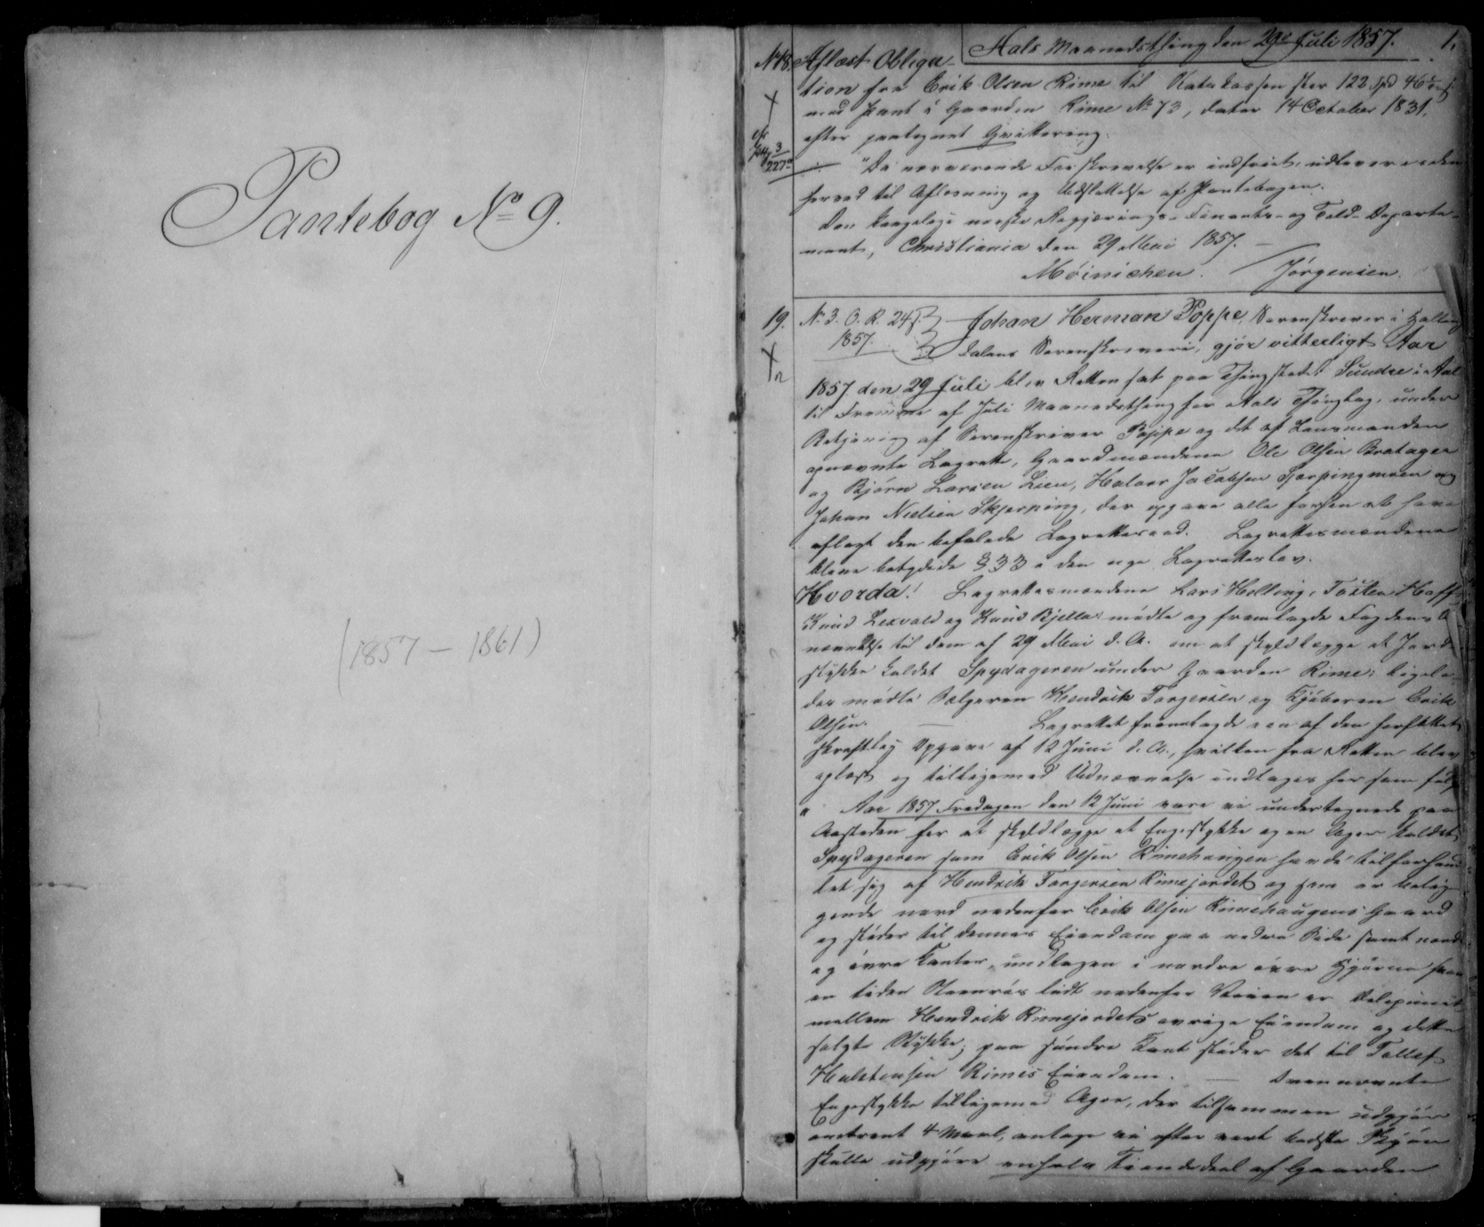 Pantebog No 9.
(1857 – 1861)
Aals Maanedsthing den 29de Juli 1857.
1.
No 18. Aflæst Obliga-
tion fra Erik Olsen Rime til Statskassen stor 122 Spd 46
med Pant i Gaarden Rime No 73, dateret 14 October 1831.
efter paategnet Qvittering:
3
227
"Da nærværende Forskrivelse er indfriet, udleveres den
herved til Aflæsning og Udslettelse af Pantebogen.
Den kongelige norske Regjerings Finants- og Told-Departe-
ment, Christiania den 29 Mai 1857.
Møinichen. Jørgensen.
19. No 3. O. R. 24 s. Johan Herman Poppe, Sorenskriver i Halling
1857. dalens Sorenskriveri, gjør vitterligt Aar
1857 den 29 Juli blev Retten sat paa Thingstedet Sundre i Aal
til Fremme af Juli Maanedsthing for Aals Thinglag, under
Betjening af Sorenskriver Poppe og det af Lensmanden
opnævnte Lagrette, Gaardmændene Ole Olsen Bratager
og Bjørn Larsen Lien, Halvor Jacobsen Torpingmoen og
Johan Nielsen Skjerping, der opgave alle forhen at have
aflagt den befalede Lagrettesed. Lagrettesmændene
bleve betydede § 33 i den nye Lagretteslov.
Hvorda! Lagrettesmændene Lars Helling, Tosten Hoff
Knud Lexvold og Knud Bjella mødte og fremlagde Fogdens
nævnelse til dem af 29 Mai d. A. om at skyldlægge et Jord
stykke kaldet Spydageren under Gaarden Rime; ligele-
des mødte Sælgeren Hendrik Torgersen og Kjøberen Erik
Olsen. Lagrettet fremlagde en af dem forfattet
skriftlig Opgave af 12 Juni d. A., hvilken fra Retten blev
oplæst og tilligemed Udnævnelse indtages her som følg
"Aar 1857 Fredagen den 12 Juni vare vi undertegnede paa
Aasteden for at skyldlægge et Engestykke og en Ager kaldet
Spydageren som Erik Olsen Rimehaugen havde tilforhand
let sig af Hendrik Torgersen Rimejordet og som er belig
gende nord nedenfor Erik Olsen Rimehaugens Gaard
og støder til dennes Eiendom paa nedre Side samt nordre
og øvre Kanter, undtagen i nordre øvre Hjørne hvor
en liden Steenrøs lidt nedenfor Veien er Delepunct
mellem Hendrik Rimejordets øvrige Eiendom og dette
solgte Stykke; paa søndre Kant støder det til Tollef
Halstensen Rimes Eiendom. Ovennævnte
Engestykke tilligemed Ager, der tilsammen udgjør
omtrent 4 Maal, antage vi efter vort bedste Skjøn
skulle udgjøre en halv Tiendedeel af Gaarden